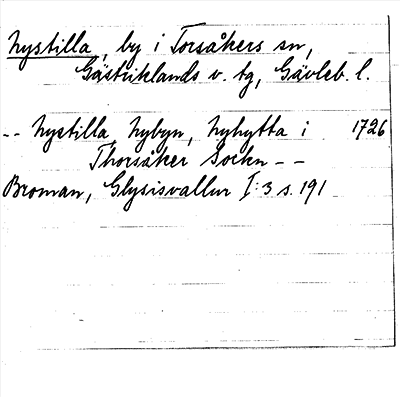 Nystilla, by i Torsåkers sn,
Gästriklands v. tg, Gävleb. l.
-- Nystilla Nybyn, Nyhytta i 1726
Thorsåker Sockn --
Broman, Glysisvallur I:3 s. 191